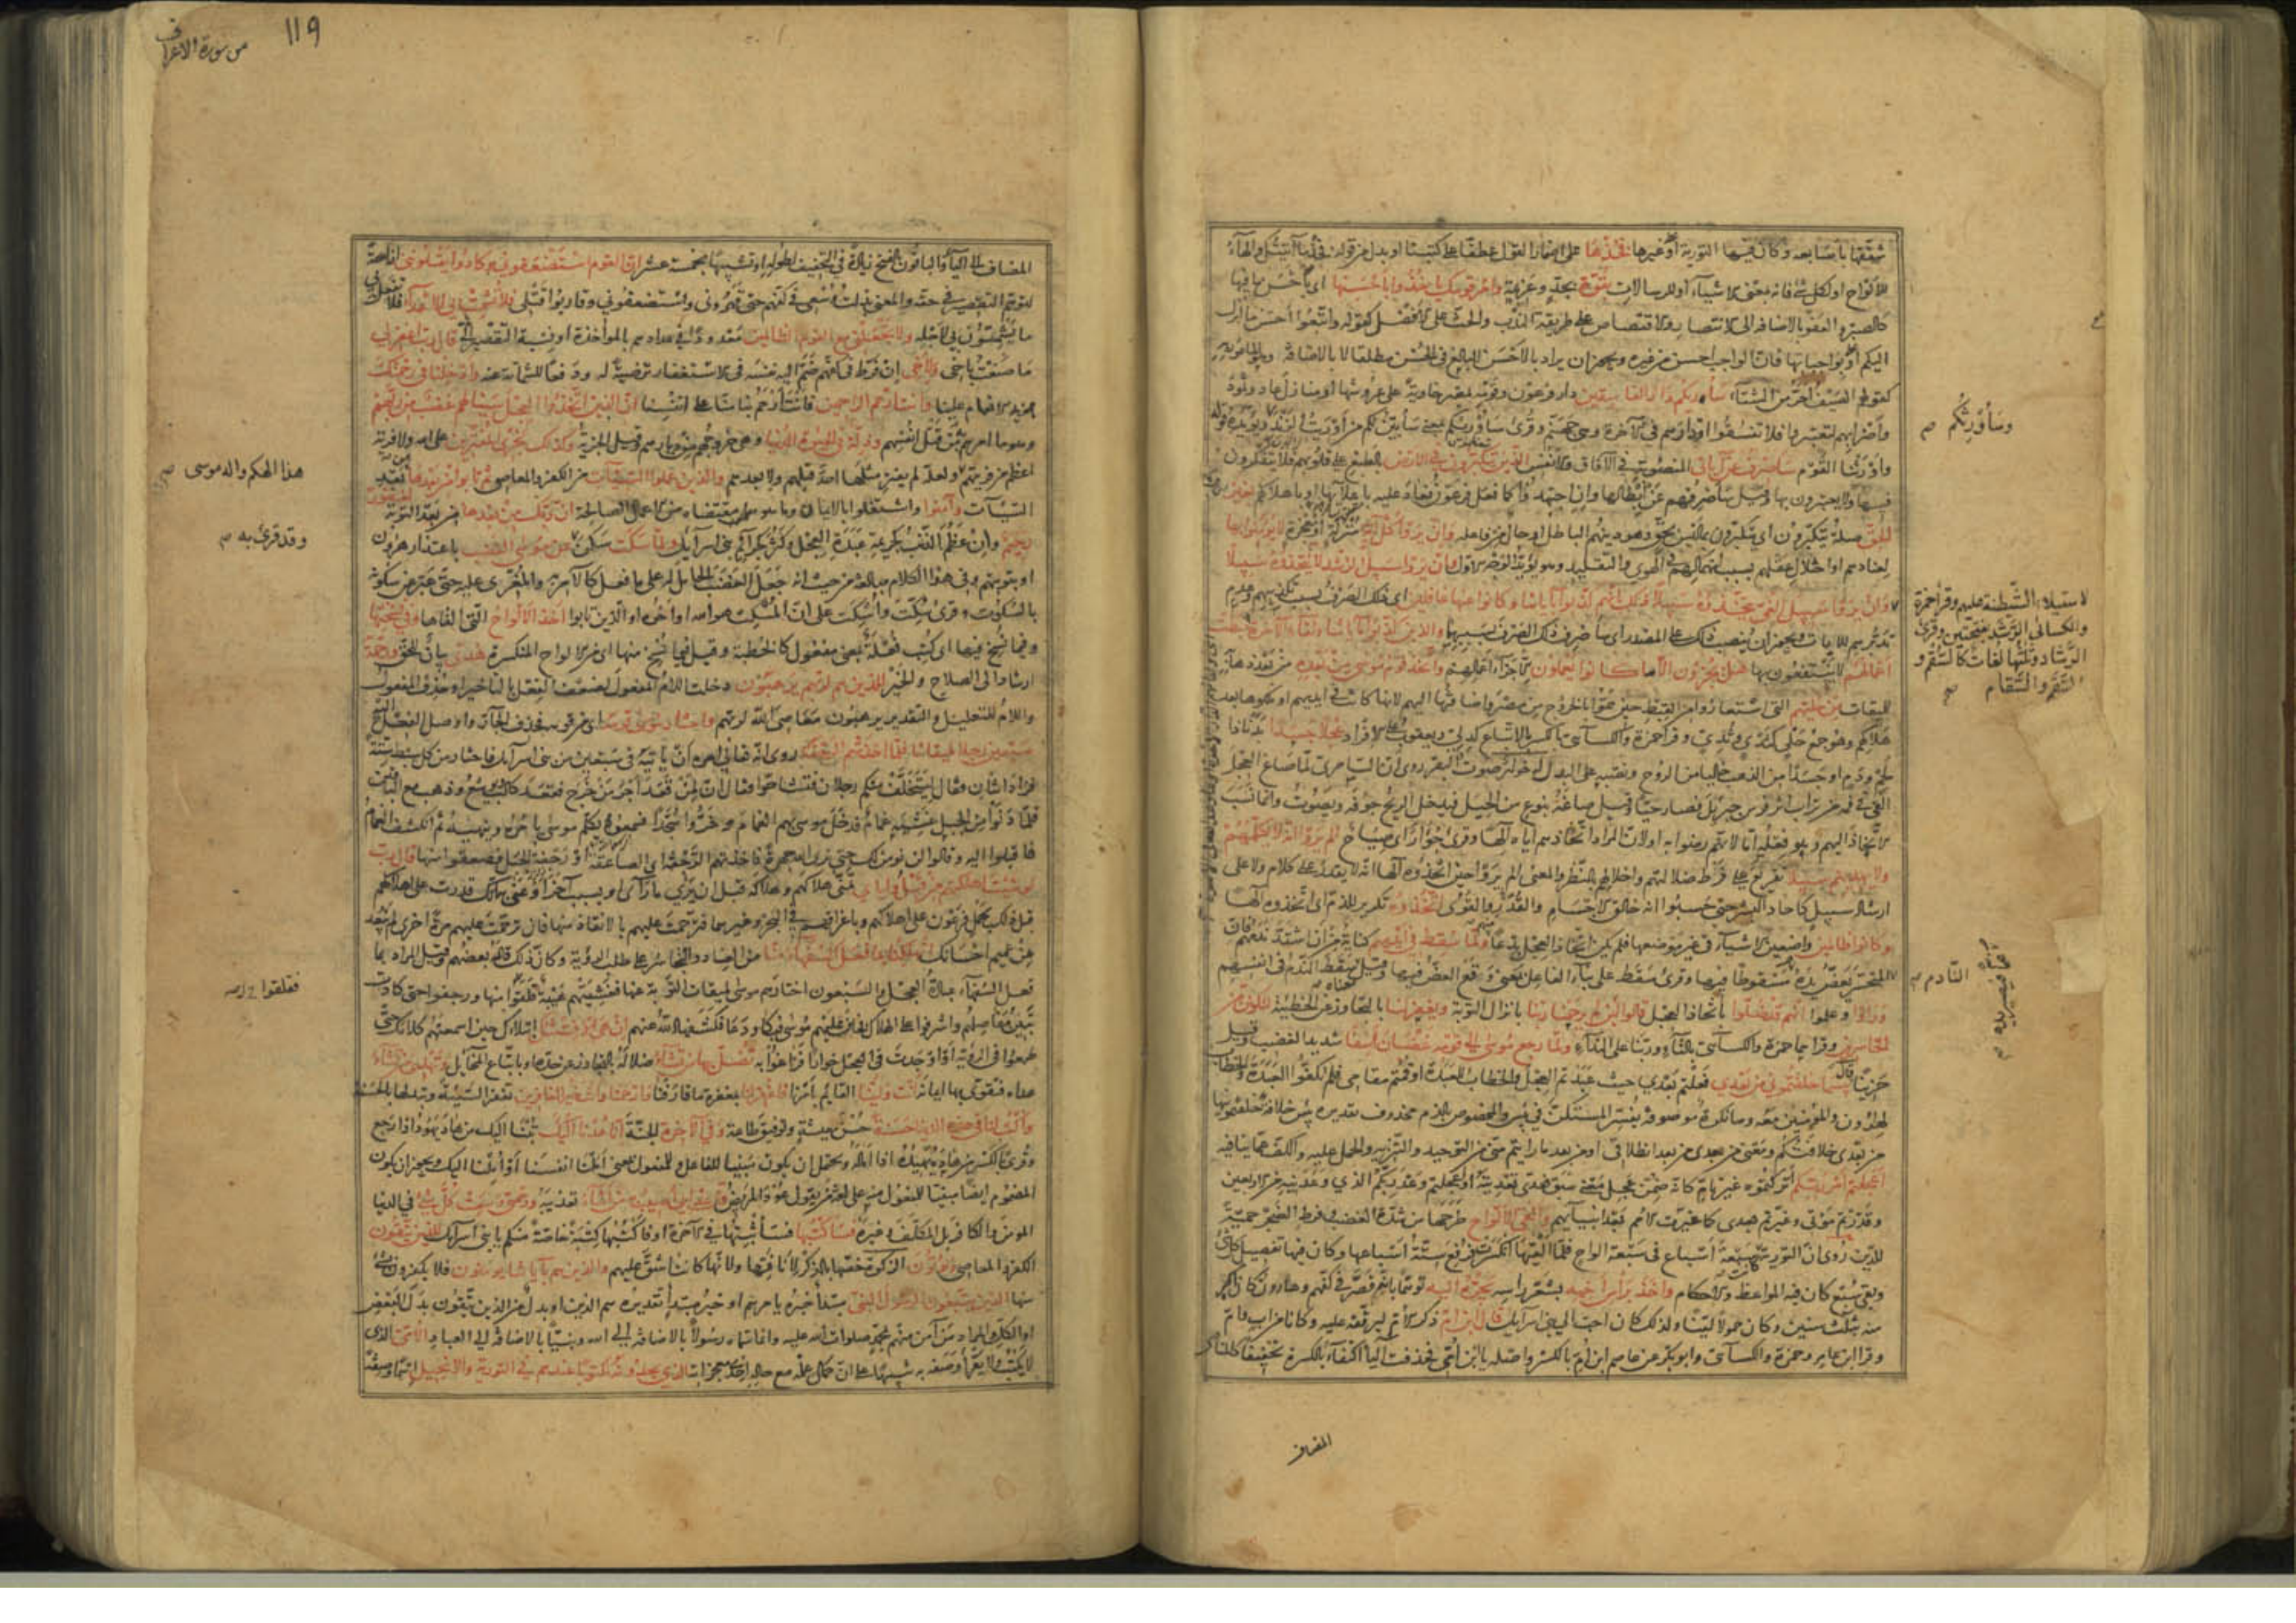 شققها باصابعه وكان فيها التورية او غيرها فخذها على اضمار القول عطفا على كتبنا او بدل من قوله فخذ ما آتيتك والهاء
للالواح او لكل شئ فانه بمعنى الاشياء او للرسالات بقوة بجد وعزيمة وامر قومك ياخذوا باحسنها اي باحسن ما فيها
كالصبر والعفو بالاضافة الى الانتصار والاقتصاص على طريقة الندب والحث على الافضل كقوله واتبعوا احسن ما انزل
اليكم او بواجباتها فان الواجب احسن من غيره ويجوز ان يراد بالاحسن البالغ في الحسن مطلقا لا بالاضافة وهو المامور به
كقولهم الصيف احر من الشتاء ساريكم دار الفاسقين دار فرعون وقومه بمصر خاوية على عروشها او منازل عاد وثمود
واضرابهم لتعتبروا فلا تفسقوا او دارهم في الاخرة وهي جهنم وقرئ ساوريكم بمعنى سابين لكم من اوريت الزند ويؤيده قوله
واورثنا القوم ساصرف عن آياتي المنصوبة في الآفاق والانفس الذين يتكبرون في الارض بالطبع على قلوبهم فلا يتفكرون
فيها ولا يعتبرون بها وقيل ساصرفهم عن ابطالها وان اجتهدوا كما فعل فرعون فعاد عليه باعلائها او باهلاكهم بغير
الحق صلة يتكبرون اي يتكبرون بما ليس بحق وهو دينهم الباطل او حال من فاعله وان يروا كل آية منزلة او معجزة لا يؤمنوا بها
لعنادهم او اختلال عقلهم بسبب انهماكهم في الهوى والتقليد وهو يؤيد الوجه الاول وان يروا سبيل الرشد لا يتخذوه سبيلا
وان يروا سبيل الغي يتخذوه سبيلا ذلك بانهم كذبوا بآياتنا وكانوا عنها غافلين اي ذلك الصرف بسبب تكذيبهم وعدم
تدبرهم للآيات ويجوز ان ينصب ذلك على المصدر اي ساصرف ذلك الصرف بسببهما والذين كذبوا بآياتنا ولقاء الآخرة حبطت
اعمالهم لا ينتفعون بها هل يجزون الا ما كانوا يعملون الا جزاء اعمالهم واتخذ قوم موسى من بعده من بعد ذهابه
للميقات من حليهم التي استعاروا من القبط حين هموا بالخروج من مصر واضافتها اليهم لانها كانت في ايديهم او ملكوها بعد
هلاكهم وهو جمع حلي كثدي وثدي وقرا حمزة والكسائي بالكسر بالاتباع كدلي ويعقوب على الافراد عجلا جسدا بدنا ذا
لحم ودم او جسدا من الذهب خاليا من الروح ونصبه على البدل له خوار صوت البقر روى ان السامري لما صاغ العجل
القى في فمه من تراب اثر فرس جبريل فصار حيا وقيل صاغه بنوع من الحيل فيدخل الريح جوفه ويصوت وانما نسب
الاتخاذ اليهم وهو فعله اما لانهم رضوا به او لان المراد اتخاذهم اياه الها وقرئ جؤار اي صياح الم يروا انه لا يكلمهم
ولا يهديهم سبيلا تقريع على فرط ضلالتهم واخلالهم بالنظر والمعنى الم يروا حين اتخذوه الها انه لا يقدر على كلام ولا على
ارشاد سبيل كآحاد البشر حتى حسبوا انه خالق الاجسام والقدر والقوى اتخذوه تكرير للذم اي اتخذوه الها
وكانوا ظالمين واضعين الاشياء في غير موضعها فلم يكن اتخاذ العجل بدعا منهم ولما سقط في ايديهم كناية من ان اشتد ندمهم فان
المتحسر يعض يده فتصير يده مسقوطا فيها وقرئ سقط على بناء الفاعل بمعنى وقع العض فيها وقيل معناه سقط الندم في انفسهم
وراوا وعلموا انهم قد ضلوا باتخاذ العجل قالوا لئن لم يرحمنا ربنا بانزال التوبة ويغفر لنا بالتجاوز عن الخطيئة لنكونن من
الخاسرين وقراهما حمزة والكسائي بالتاء وربنا على النداء ولما رجع موسى الى قومه غضبان اسفا شديد الغضب وقيل
حزينا قال بئسما خلفتموني من بعدي فعلتم بعدي حيث عبدتم العجل والخطاب للعبدة او قمتم مقامي فلم تكفوا العبدة والخطاب
لهرون والمؤمنين معه وما نكرة موصوفة يفسر المستكن في بئس والمخصوص بالذم محذوف تقديره بئس خلافة خلفتمونيها
من بعدي خلافتكم ومعنى من بعدي من بعد انطلاقي او من بعد ما رايتم مني من التوحيد والتنزيه والحمل عليه والكف عما ينافيه
اعجلتم امر ربكم اتركتموه غير تام كانه ضمن عجل معنى سبق فعدى تعديته او اعجلتم وعد ربكم الذي وعدنيه من الاربعين
وقدرتم موتي وغيرتم بعدي كما غيرت الامم بعد انبيائهم والقى الالواح طرحها من شدة الغضب وفرط الضجر حمية
للدين روى ان التورية كانت سبعة اسباع في سبعة الواح فلما القيها انكسرت فرفع ستة اسباعها وكان فيها تفصيل كل شئ
وبقي سبع كان فيه المواعظ والاحكام واخذ براس اخيه بشعر راسه يجره اليه توهما بانه قصر في كفهم وهارون كان اكبر
منه بثلث سنين وكان حمولا لينا ولذلك كان احب الى بني اسرائيل قال ابن ام ذكر الام ليرققه عليه وكانا من اب وام
وقرا ابن عامر وحمزة والكسائي وابو بكر عن عاصم ابن ام بالكسر واصله يا ابن امي فحذفت الياء اكتفاء بالكسرة تخفيفا كالمنادى
المضاف
وساورثكم صح
لاستيلاء الشيطنة عليهم وقرا حمزة
والكسائي الرشد بفتحتين وقرئ
الرشاد وثلثتها لغات كالسقم و
السقم والسقام صح
النادم صح
من سورة الاعراف
119
المضاف الى الياء والباقون بالفتح زيادة في التخفيف لطوله او تشبيها بخمسة عشر ان القوم استضعفوني وكادوا يقتلونني ازاحة
لتوهم التقصير في حقه والمعنى بذلت وسعي في كفهم حتى قهروني واستضعفوني وقاربوا قتلي فلا تشمت بي الاعداء فلا تفعل بي
ما يشمتون بي لاجله ولا تجعلني مع القوم الظالمين معدودا في عدادهم بالمواخذة او نسبة التقصير الي قال رب اغفر لي
ما صنعت باخي ولاخي ان فرط في كفهم ضم اليه نفسه في الاستغفار ترضية له ودفعا للشماتة عنه وادخلنا في رحمتك
بمزيد الانعام علينا وانت ارحم الراحمين فانت ارحم بنا منا على انفسنا ان الذين اتخذوا العجل سينالهم غضب من ربهم
وهو ما امرهم من قتل انفسهم وذلة في الحيوة الدنيا وهي خروجهم من ديارهم وقيل الجزية وكذلك نجزي المفترين على الله ولا فرية
اعظم من فريتهم ولعله لم يفتر مثلها احد قبلهم ولا بعدهم والذين عملوا السيئات من الكفر والمعاصي ثم تابوا من بعدها من بعد
السيئات وآمنوا واشتغلوا بالايمان وما هو مقتضاه من الاعمال الصالحة ان ربك من بعدها من بعد التوبة لغفور
رحيم وان عظم الذنب كجريمة عبدة العجل وكثر كجرائم بني اسرائيل ولما سكت سكن عن موسى الغضب باعتذار هرون
او بتوبتهم وفي هذا الكلام مبالغة من حيث انه جعل الغضب الحامل له على ما فعل كالآمر به والمغري عليه حتى عبر عن سكونه
بالسكوت وقرئ سكت واسكت على ان المسكت هو الله او اخوه او الذين تابوا اخذ الالواح التي القاها وفي نسختها
وفيما نسخ فيها اي كتب فعلة بمعنى مفعول كالخطبة وقيل فيما نسخ منها اي من الالواح المنكسرة هدى بيان للحق ورحمة
ارشاد الى الصلاح والخير للذين هم لربهم يرهبون دخلت اللام المفعول لضعف الفعل بالتاخير او حذف المفعول
واللام للتعليل والتقدير يرهبون معاصي الله لربهم واختار موسى قومه اي من قومه فحذف الجار واوصل الفعل اليه
سبعين رجلا لميقاتنا فلما اخذتهم الرجفة روى انه تعالى امره ان ياتيه في سبعين من بني اسرائيل فاختار من كل سبط ستة
فزاد اثنان فقال ليتخلف منكم رجلان فتشاحوا فقال ان لمن قعد اجر من خرج فقعد كالب ويوشع وذهب مع الباقين
فلما دنوا من الجبل غشيه غمام فدخل موسى بهم الغمام وخروا سجدا فسمعوه يكلم موسى يامره وينهيه ثم انكشف الغمام
فاقبلوا اليه وقالوا لن نومن لك حتى نرى الله جهرة فاخذتهم الرجفة اي الصاعقة او رجفة الجبل فصعقوا منها قال رب
لو شئت اهلكتهم من قبل واياي تمنى هلاكهم وهلاكه قبل ان يرى ما راى او بسبب آخر او عنى به انك قدرت على اهلاكهم
قبل ذلك بحمل فرعون على اهلاكهم وباغراقهم في البحر وغيرهما فترحمت عليهم بالانقاذ منها فان ترحمت عليهم مرة اخرى لم يبعد
من عميم احسانك اتهلكنا بما فعل السفهاء منا من العناد والتجاسر على طلب الرؤية وكان ذلك قاله بعضهم وقيل المراد بما
فعل السفهاء عبادة العجل والسبعون اختارهم موسى لميقات التوبة عنها فغشيتهم هيبة قلقوا منها ورجفوا حتى كادت
تبين مفاصلهم واشرفوا على الهلاك فخاف عليهم موسى فبكا ودعا فكشفها الله عنهم ان هي الا فتنتك ابتلاؤك حين اسمعتهم كلامك حتى
طمعوا في الرؤية او اوجدت في العجل خوارا فزاغوا به تضل بها من تشاء ضلاله بالتجاوز عن حده او باتباع المخايل وتهدي من تشاء
هداه فيقوى بها ايمانه انت ولينا القايم بامرنا فاغفر لنا بمغفرة ما قارفنا وارحمنا وانت خير الغافرين تغفر السيئة وتبدلها بالحسنة
واكتب لنا في هذه الدنيا حسنة حسن معيشة وتوفيق طاعة وفي الآخرة الجنة انا هدنا اليك تبنا اليك من هاد يهود اذا رجع
وقرئ بالكسر من هاده يهيده اذا اماله ويحتمل ان يكون مبنيا للفاعل وللمفعول بمعنى املنا انفسنا او املنا اليك ويجوز ان يكون
المضموم ايضا مبنيا للمفعول منه على لغة من يقول عود المريض قال عذابي اصيب به من اشاء تعذيبه ورحمتي وسعت كل شئ في الدنيا
المومن والكافر بل المكلف وغيره فساكتبها فساثبتها في الآخرة او فاكتبها كتبة خاصة منكم يا بني اسرائيل للذين يتقون
الكفر والمعاصي ويؤتون الزكوة خصها بالذكر لانافتها ولانها كانت اشق عليهم والذين هم بآياتنا يومنون فلا يكفرون بشئ
منها الذين يتبعون الرسول النبي مبتدا خبره يامرهم او خبر مبتدا تقديره هم الذين او بدل من الذين يتقون بدل البعض
او الكل والمراد من آمن منهم بمحمد صلوات الله عليه وانما سماه رسولا بالاضافة الى الله ونبيا بالاضافة الى العباد الامي الذي
لا يكتب ولا يقرا وصفه به تنبيها على ان كمال علمه مع حاله احدى معجزاته الذي يجدونه مكتوبا عندهم في التورية والانجيل اسما وصفة
هذا الحكم والد موسى صح
وقد قرئ به صح
فقلقوا صح